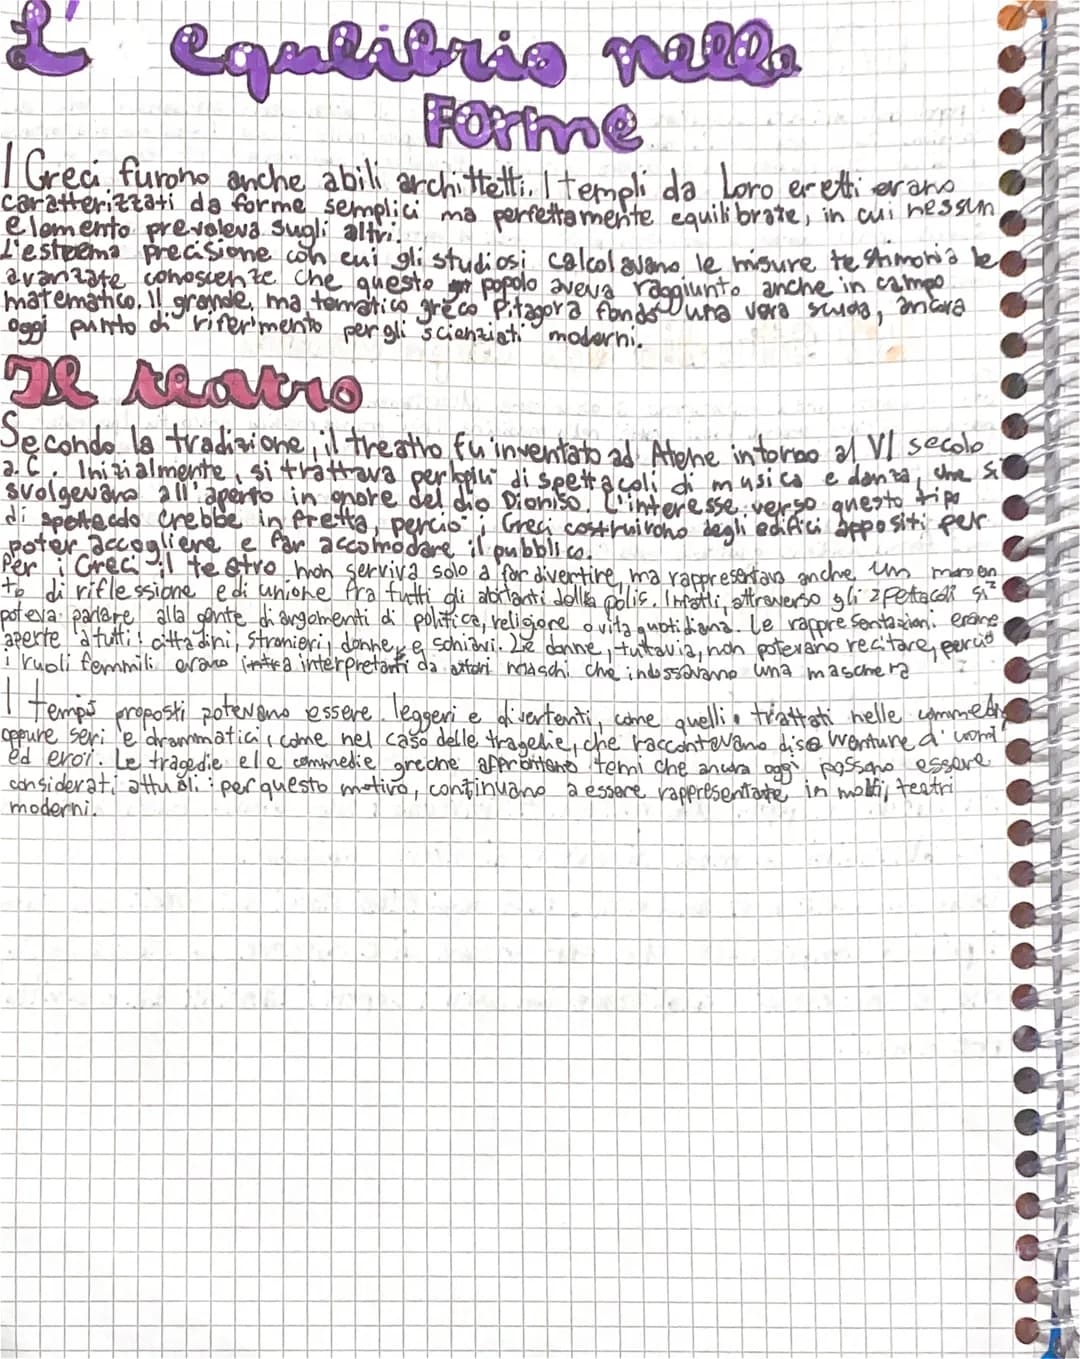 L' equlibrio nelle
Forme
I Greci furono anche abili archittetti. I templi da loro eretti erano
caratterizzati da forme semplici ma perfettamente equilibrate, in cui nessun
elemento prevaleva sugli altri.
L'estrema precisione con cui gli studiosi calcolavano le misure testimonia le
avanzate conoscenze che questo popolo aveva raggiunto anche in campo
matematico. Il grande matematico greco Pitagora fondò una vera scuola, ancora
oggi punto di riferimento per gli scienziati moderni.
Il teatro
Secondo la tradizione, il treatro fu inventato ad Atene intorno al VI secolo
a.C. Inizialmente, si trattava perlopiù di spettacoli di musica e danza, che si
svolgevano all'aperto in onore del dio Dioniso. L'interesse verso questo tipo
di spettacolo crebbe in fretta, perciò i Greci costruirono degli edifici appositi per
poter accogliere e far accomodare il pubblico.
Per i Greci il teatro non serviva solo a far divertire, ma rappresentava anche un momen
to di riflessione e di unione fra tutti gli abitanti della polis. Infatti, attraverso gli spettacoli si
poteva parlare alla gente di argomenti di politica, religione o vita quotidiana. Le rappresentazioni erano
aperte a tutti: cittadini, stranieri, donne e schiavi. Le donne, tuttavia, non potevano recitare, perciò
i ruoli femmili erano interpretanti da attori maschi che indossavano una maschera
I temps proposti potevano essere leggeri e divertenti, come quelli trattati nelle commedie
oppure seri e drammatici, come nel caso delle tragedie, che raccontavano disavventure d' uomi
ed eroi. Le tragedie e le commedie greche affrontano temi che ancora oggi possono essere
considerati attuali: per questo motivo, continuano a essere rappresentate in molti teatri
moderni.